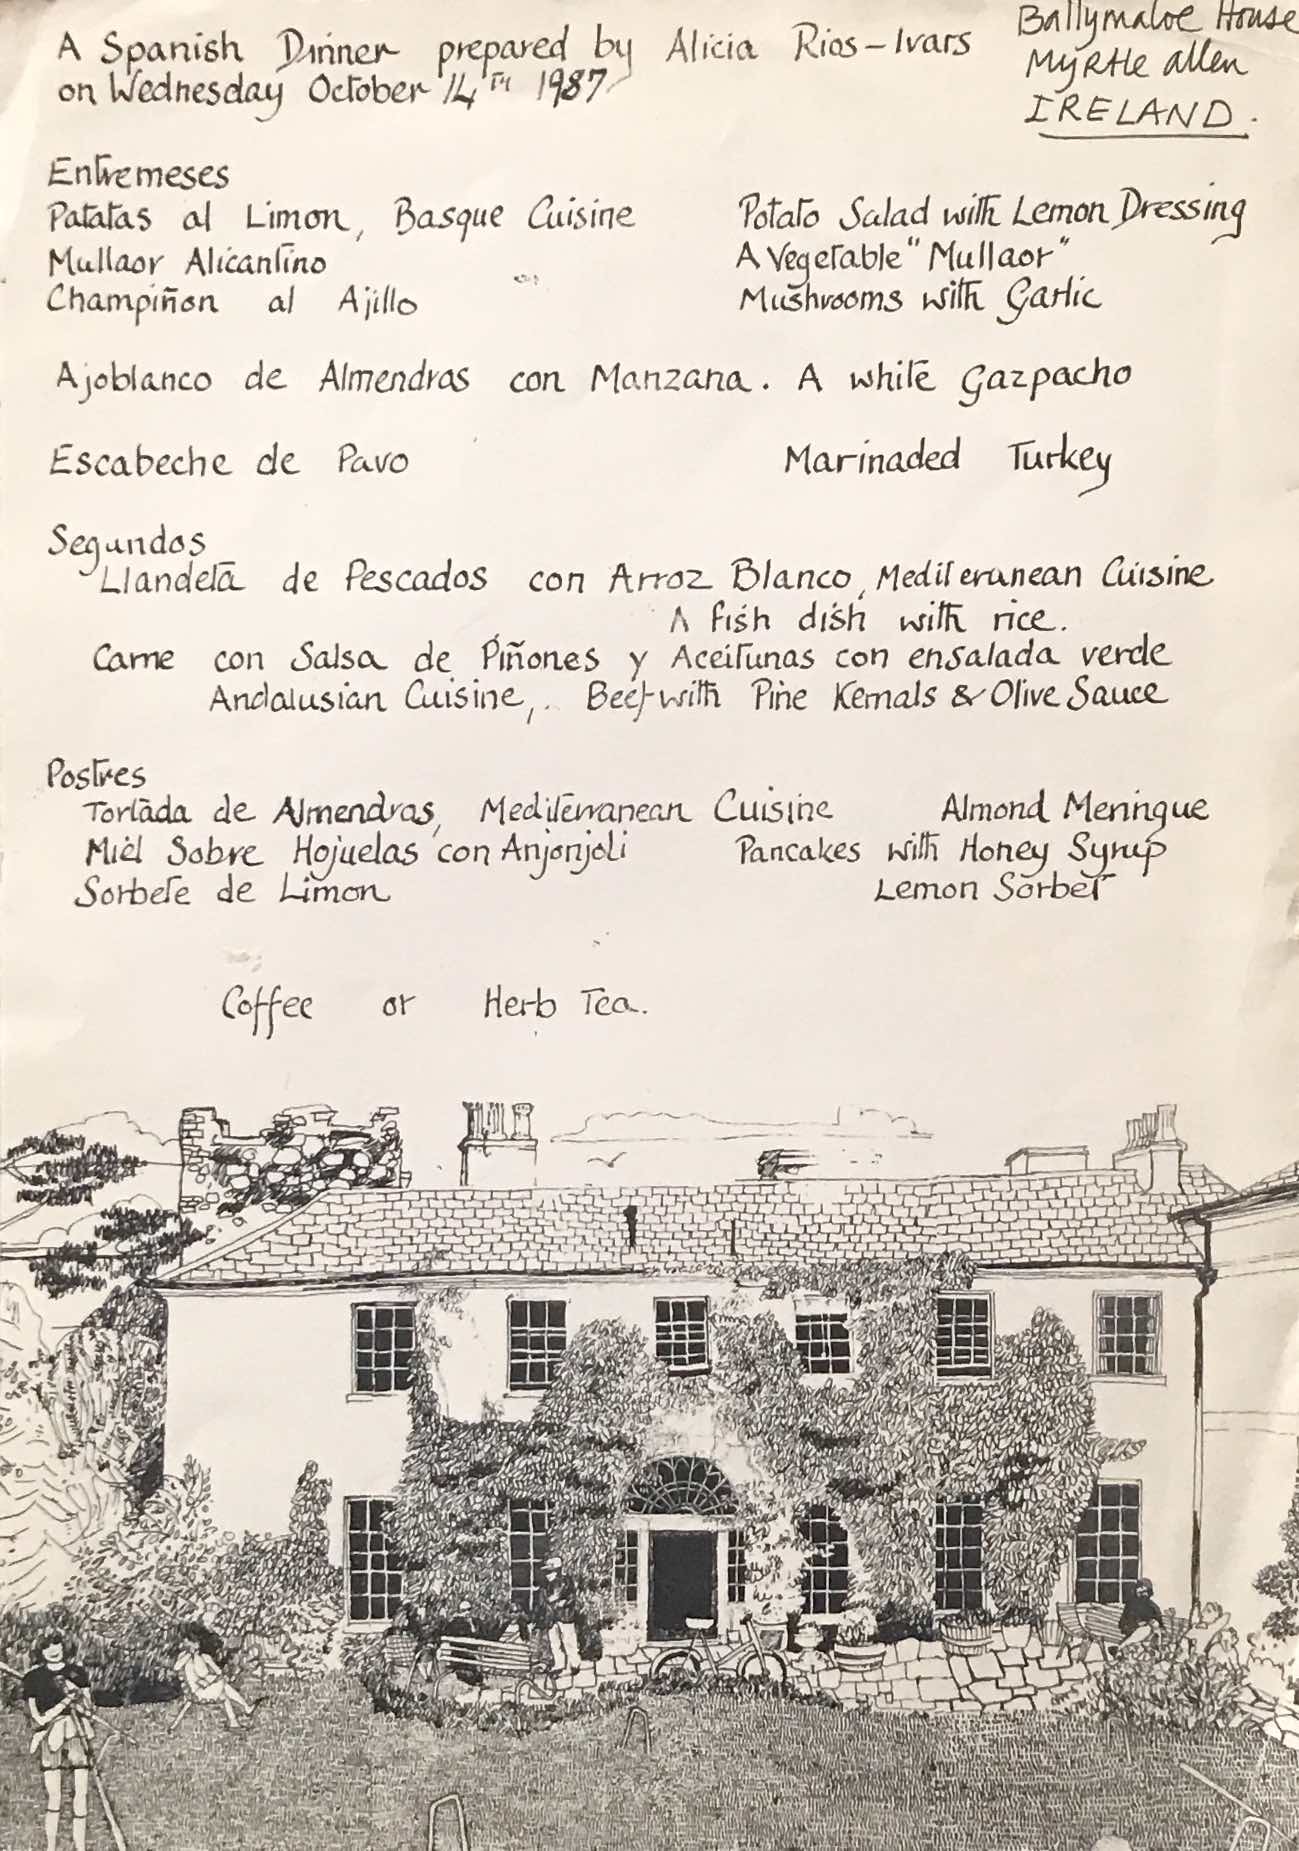 A Spanish Dinner prepared by Alicia Rios-Ivars
on Wednesday October 14TH 1987
Ballymaloe House
Myrtle allen
IRELAND.
Entremeses
Patatas al Limon, Basque Cuisine Potato Salad with Lemon Dressing
Mullaor Alicantino A Vegetable "Mullaor"
Champiñon al Ajillo Mushrooms with Garlic
Ajoblanco de Almendras con Manzana. A white Gazpacho
Escabeche de Pavo Marinaded Turkey
Segundos
Llandeta de Pescados con Arroz Blanco, Mediteranean Cuisine
A fish dish with rice.
Carne con Salsa de Piñones y Aceitunas con ensalada verde
Andalusian Cuisine, Beef with Pine Kernals & Olive Sauce
Postres
Tortada de Almendras, Mediterranean Cuisine Almond Meringue
Miel Sobre Hojuelas con Anjonjoli Pancakes with Honey Syrup
Sorbete de Limon Lemon Sorbet
Coffee or Herb Tea.